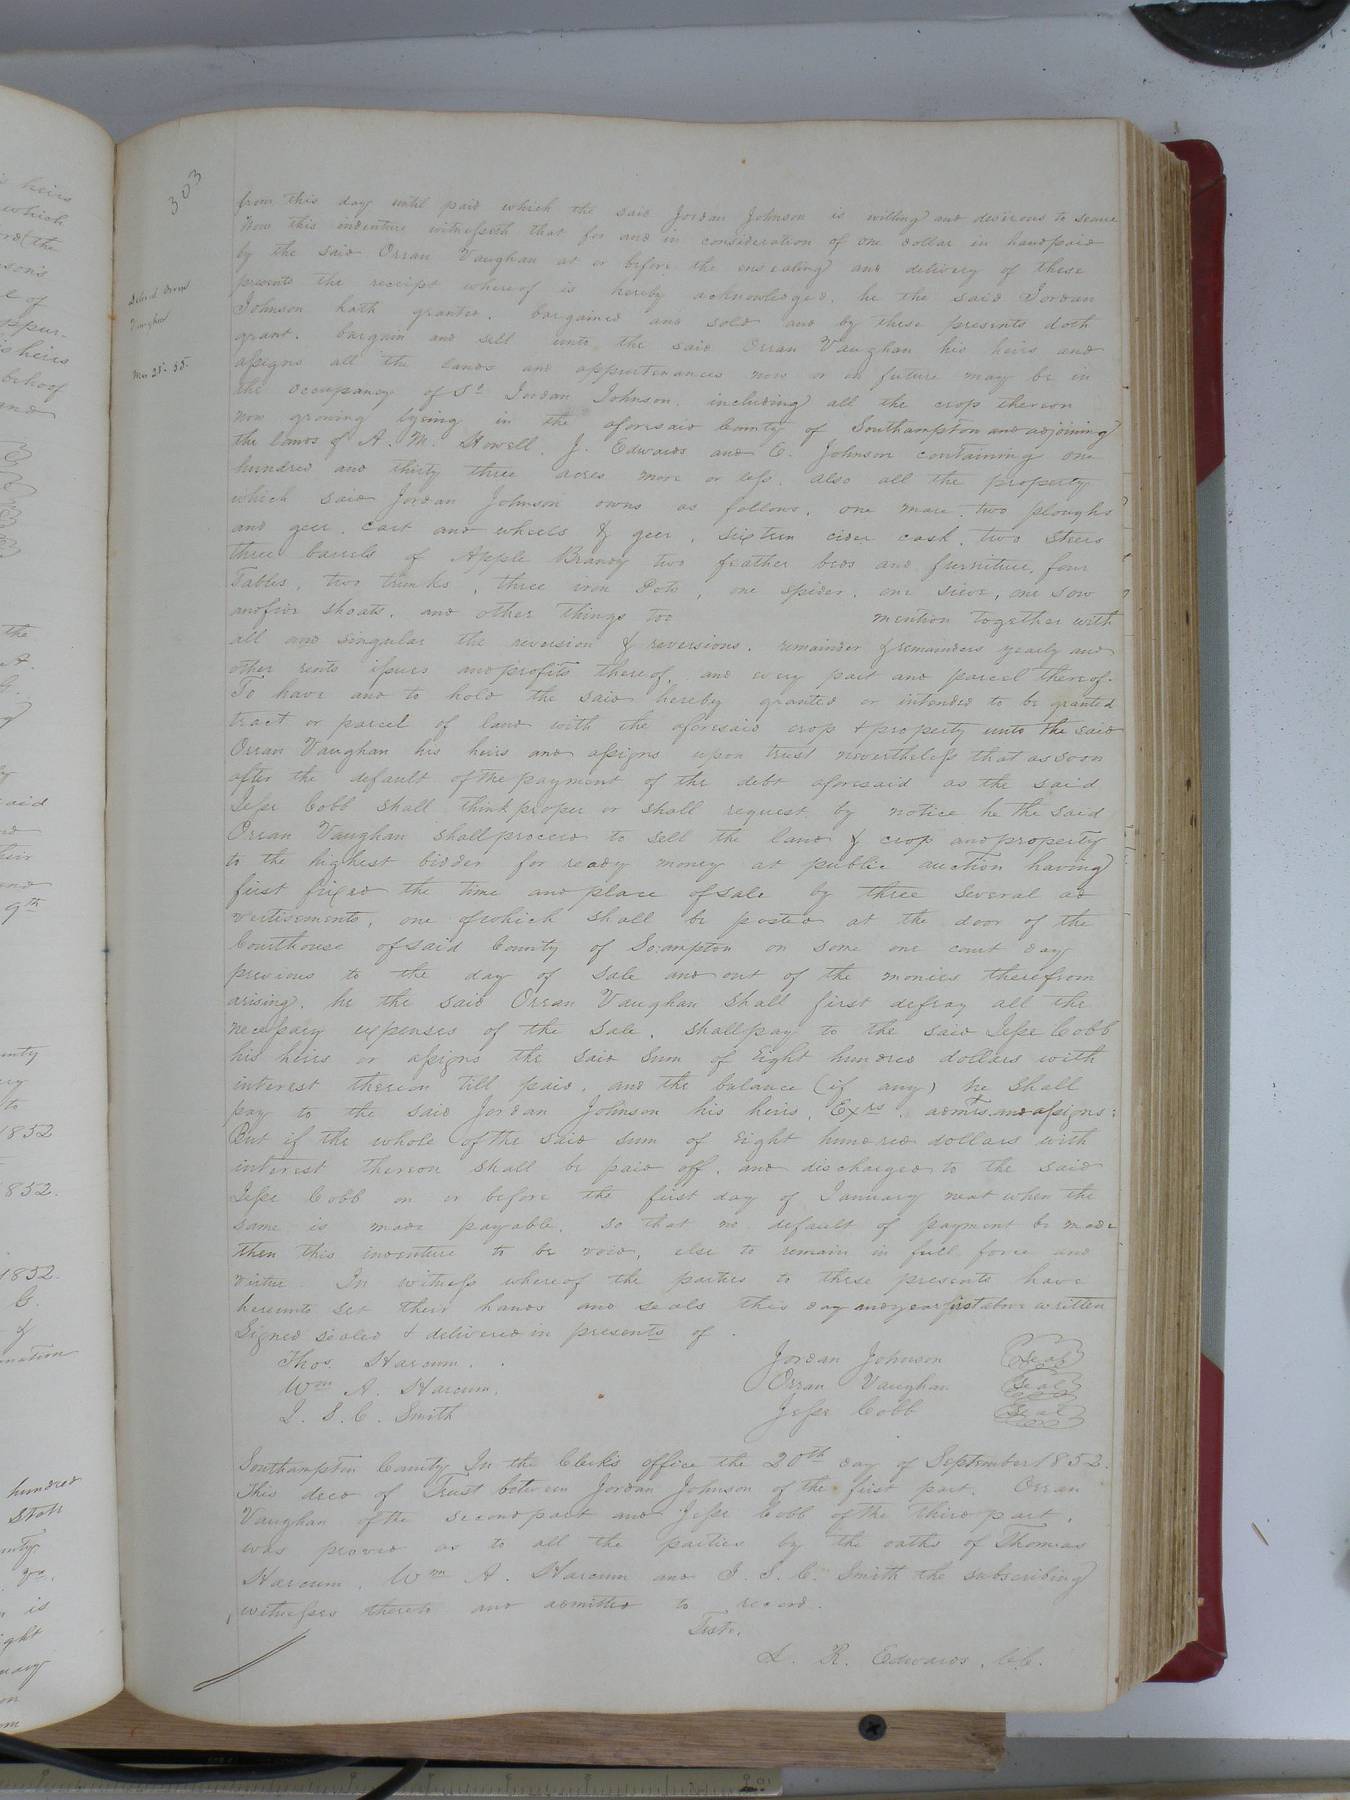 303
from this day until paid which the said Jordan Johnson is willing and desirous to secure
Now this indenture witnesseth that for and in consideration of one dollar in hand paid
by the said Orran Vaughan at or before the ensealing and delivery of these
presents the receipt whereof is hereby acknowledged, he the said Jordan
Johnson hath granted, bargained and sold and by these presents doth
grant, bargain and sell unto the said Orran Vaughan his heirs and
assigns all the lands and appurtenances now or in future may be in
the occupancy of Sd Jordan Johnson, including all the crop thereon
now growing lyeing in the aforesaid County of Southampton and adjoining
the lands of A. M. Howell, J. Edwards and E. Johnson containing one
hundred and thirty three acres more or less. also all the property
which said Jordan Johnson owns as follows, one mare, two ploughs
and geer, cart and wheels & geer, sixteen cider cask, two steers
three barrels of Apple Brandy two feather beds and furniture, four
Tables, two trunks, three iron Pots, one spider, one sieve, one sow
and five shoats, and other things too mention together with
all and singular the reversion & reversions, remainder & remainders yearly and
other rents issues and profits thereof, and every part and parcel thereof.
To have and to hold the said hereby granted or intended to be granted
tract or parcel of land with the aforesaid crop & property unto the said
Orran Vaughan his heirs and assigns upon trust nevertheless that as soon
after the default of the payment of the debt aforesaid as the said
Jesse Cobb shall think proper or shall request by notice he the said
Orran Vaughan shall proceed to sell the land & crop and property
to the highest bidder for ready money at public auction having
first fixed the time and place of sale by three several ad
vertisements, one of which shall be posted at the door of the
Courthouse of said County of So:ampton on some one court day
previous to the day of sale and out of the monies therefrom
arising, he the said Orran Vaughan shall first defray all the
necessary expenses of the sale, shall pay to the said Jesse Cobb
his heirs or assigns the said sum of Eight hundred dollars with
interest thereon till paid, and the balance (if any) he shall
pay to the said Jordan Johnson his heirs, Exrs, admrs. and assigns:
But if the whole of the said sum of Eight hundred dollars with
interest thereon shall be paid off, and discharged to the said
Jesse Cobb on or before the first day of January next when the
same is made payable, so that no default of payment be made
then this indenture to be void, else to remain in full force and
virtue. In witness whereof the parties to these presents have
hereunto set their hands and seals this day and year first above written
Signed sealed & delivered in presents of
Thos. Harcum. Jordan Johnson Seal
Wm A. Harcum. Orran Vaughan Seal
J. S. C. Smith Jesse Cobb Seal
Southampton County In the Clerk's office the 20th day of September 1852.
This deed of Trust between Jordan Johnson of the first part, Orran
Vaughan of the second part and Jesse Cobb of the third part,
was proved as to all the parties by the oaths of Thomas
Harcum, Wm A. Harcum and J. S. C. Smith the subscribing
witnesses thereto and admitted to record.
Teste,
L. R. Edwards, C.C.